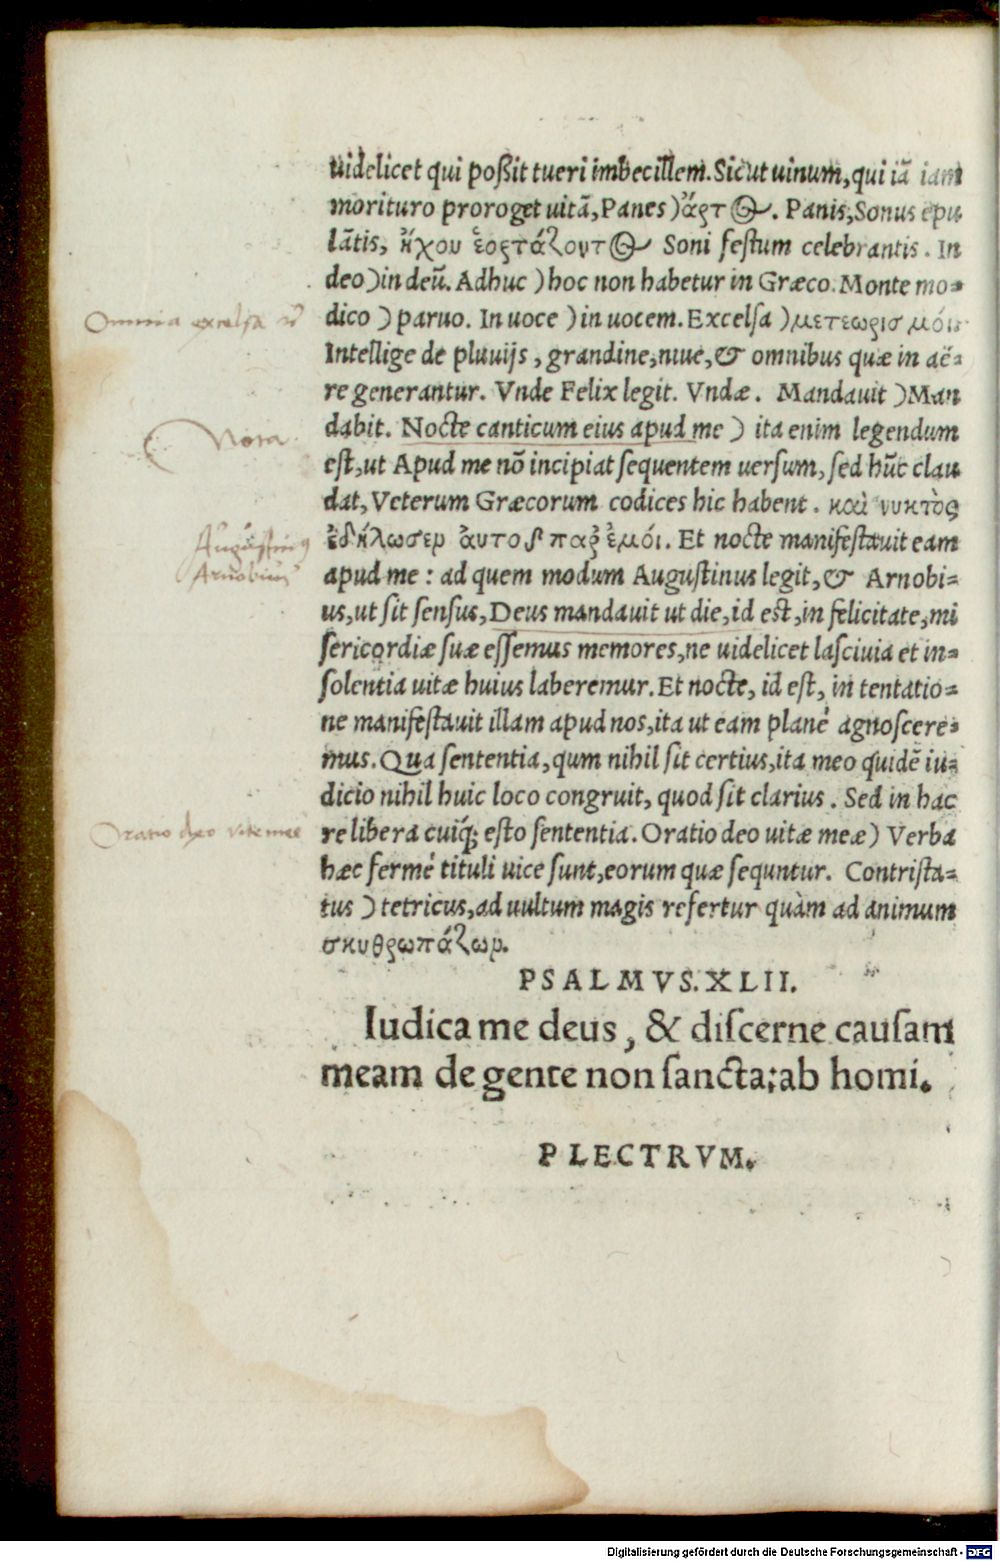 uidelicet qui poßit tueri imbecillem. Sicut uinum, qui iã iam
morituro proroget uitã, Panes ) ἄρτος. Panis, Sonus epu
lãtis, ἤχου ἑορτάζοντος Soni festum celebrantis. In
deo ) in deũ. Adhuc ) hoc non habetur in Græco. Monte mo-
Omnia excelsa
dico ) paruo. In uoce ) in uocem. Excelsa ) μετεωρισμόι
Intellige de pluuijs, grandine, niue, & omnibus quæ in aë-
re generantur. Vnde Felix legit. Vndæ. Mandauit ) Man
Nota
dabit. Nocte canticum eius apud me ) ita enim legendum
est, ut Apud me nõ incipiat sequentem uersum, sed hũc clau
dat, Veterum Græcorum codices hic habent. καὶ νυκτὸς
Augustinus
ἐδήλωσεν ἀυτοῦ παρ᾽ ἐμόι. Et nocte manifestauit eam
Arnobius
apud me: ad quem modum Augustinus legit, & Arnobi-
us, ut sit sensus, Deus mandauit ut die, id est, in felicitate, mi
sericordiæ suæ essemus memores, ne uidelicet lasciuia et in-
solentia uitæ huius laberemur. Et nocte, id est, in tentatio-
ne manifestauit illam apud nos, ita ut eam planè agnoscere-
mus. Qua sententia, qum nihil sit certius, ita meo quidẽ iu-
dicio nihil huic loco congruit, quod sit clarius. Sed in hac
Oratio deo vite mee
re libera cuiq; esto sententia. Oratio deo uitæ meæ ) Verba
hæc fermè tituli uice sunt, eorum quæ sequntur. Contrista-
tus ) tetricus, ad uultum magis refertur quàm ad animum
σκυθρωπάζων.
PSALMVS. XLII.
Iudica me deus, & discerne causam
meam de gente non sancta: ab homi.
PLECTRVM.
Digitalisierung gefördert durch die Deutsche Forschungsgemeinschaft - DFG